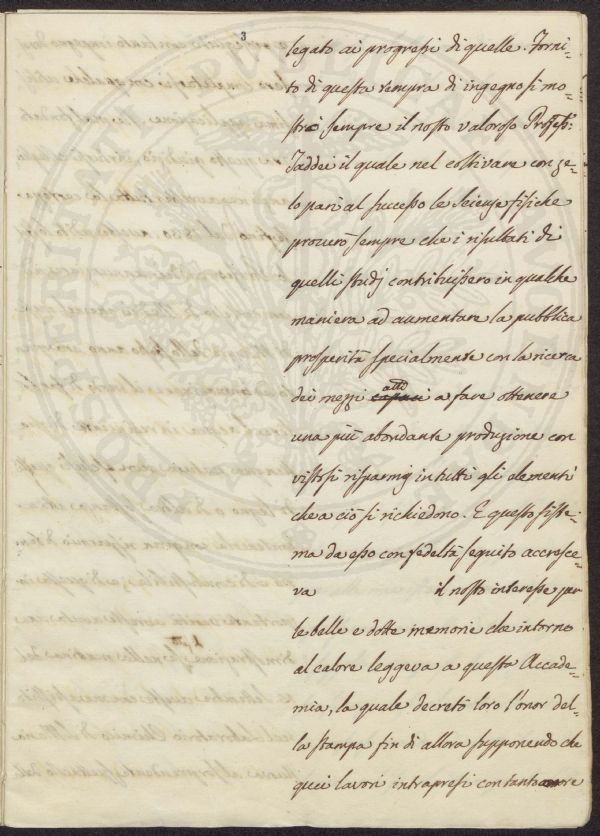 3
legato ai progressi di quelle. Forni-
to di questa tempra di ingegno si mo-
strò sempre il nostro valoroso Profess:
Taddei il quale nel coltivare con ze-
lo pari al successo le Scienze fisiche
procurò sempre che i risultati di
quelli studj contribuissero in qualche
maniera ad aumentare la pubblica
prosperità specialmente con la ricerca
dei mezzi capaci atti a fare ottenere
una più abondante produzione con
vistosi risparmj in tutti gli elementi
che a ciò si richiedono. E questo siste-
ma da esso con fedeltà seguito accresce-
va il nostro interesse per
le belle e dotte memorie che intorno
al calore leggeva a questa Accade-
mia, la quale decretò loro l'onor del-
la stampa fin di allora supponendo che
quei lavori intrapresi con tanto amore